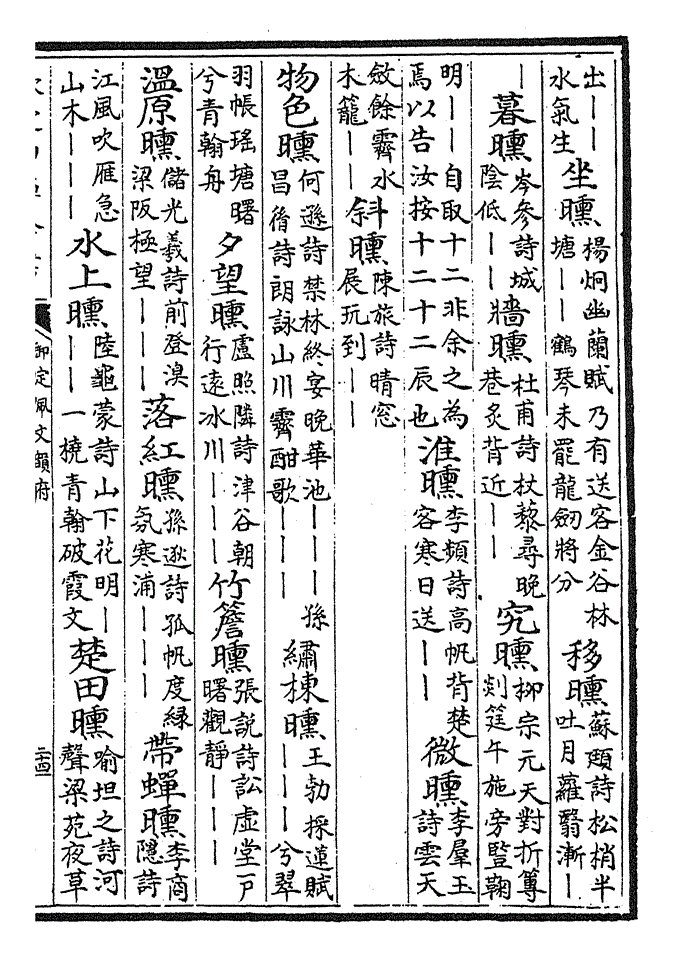 出｜｜水氣生坐曛楊炯幽蘭賦乃有送客金谷林塘｜｜鶴琴未罷龍劒將分移曛蘇頲詩松梢半吐月蘿翳漸｜
｜暮曛岑參詩城陰低｜｜牆曛杜甫詩杖藜尋晚巷炙背近｜｜究曛柳宗元天對折篿剡筳午施旁豎鞠
明｜｜自取十二非余之為焉以告汝按十二十二辰也淮曛李頻詩高帆背楚客寒日送｜｜微曛李羣玉詩雲天
斂餘霽水木籠｜｜斜曛陳旅詩晴窓展玩到｜｜
物色曛何遜詩禁林終宴晚華池｜｜｜孫昌胤詩朗詠山川霽酣歌｜｜｜繡棟曛王勃採蓮賦｜｜｜兮翠
羽帳瑤塘曙兮青翰舟夕望曛盧照隣詩津谷朝行遠冰川｜｜｜竹簷曛張說詩訟虛堂戸曙觀靜｜｜｜
溫原曛儲光羲詩前登漠梁阪極望｜｜｜落紅曛孫逖詩孤帆度綠氛寒浦｜｜｜帶蟬曛李商隱詩
江風吹雁急山木｜｜｜水上曛陸龜蒙詩山下花明｜｜｜一橈青翰破霞文楚田曛喻坦之詩河聲梁苑夜草
御定佩文韻府